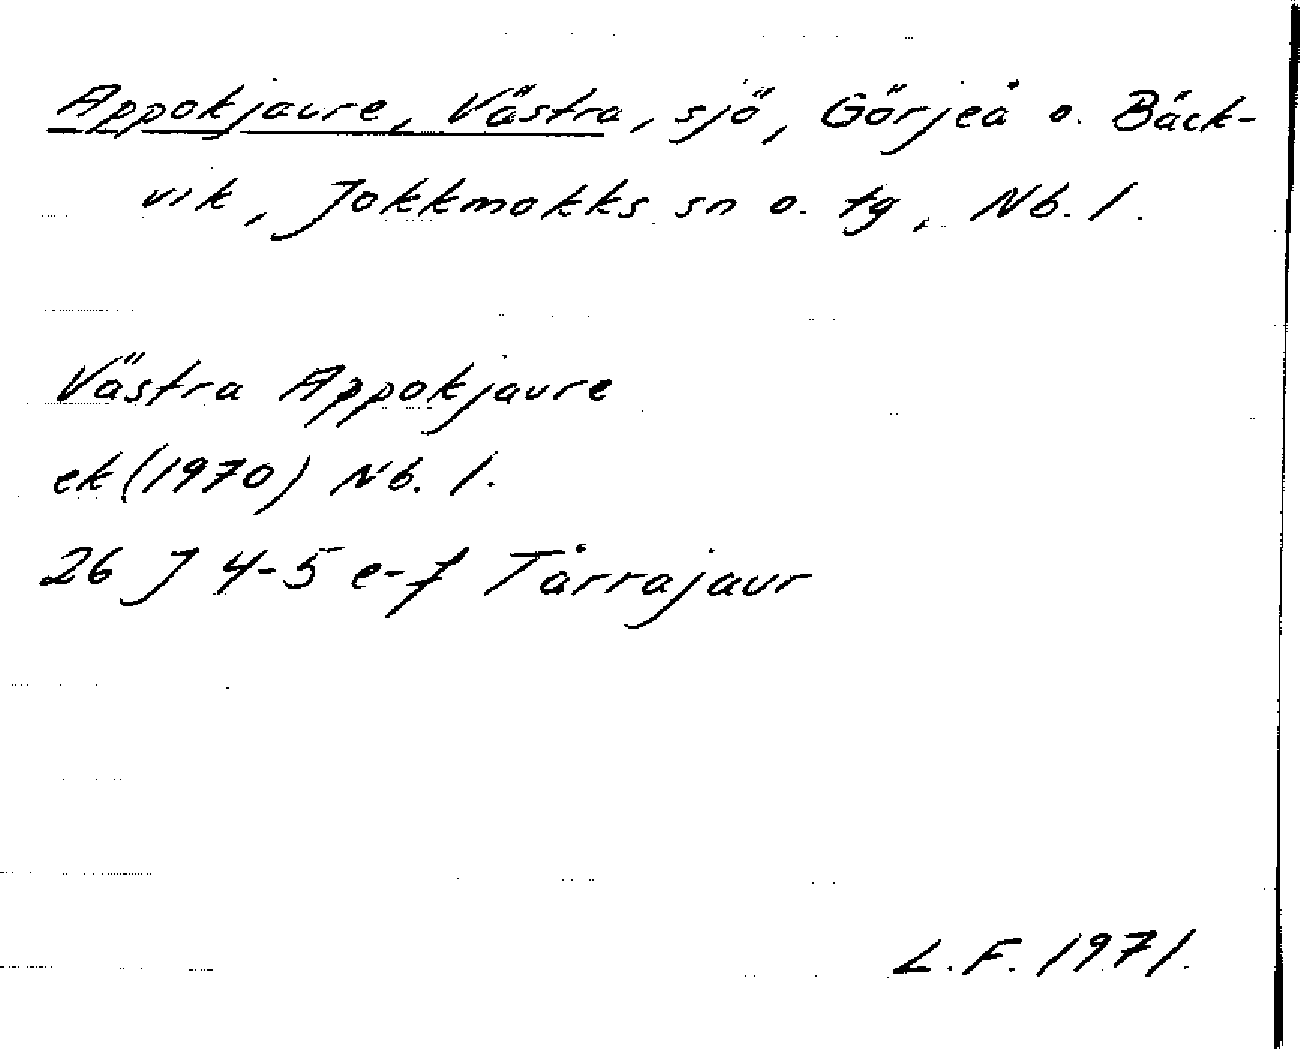 Appokjaure, Västra, sjö, Görjeå o. Bäck-
vik, Jokkmokks sn o. tg, Nb. l.
Västra Appokjaure
ek (1970) Nb. l.
26 J 4-5 e-f Tårrajaur
L.F. 1971.